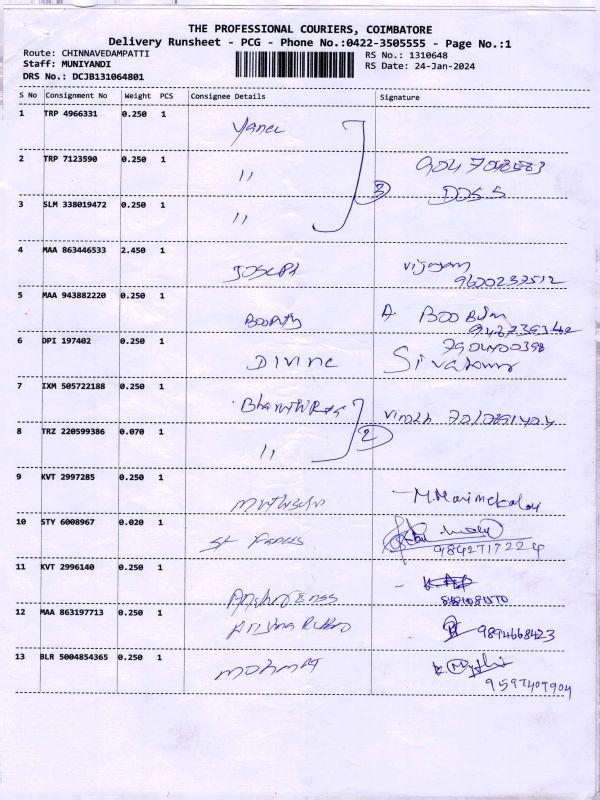 THE PROFESSIONAL COURIERS, COIMBATORE
Delivery Runsheet - PCG - Phone No.:0422-3505555 - Page No.:1
Route: CHINNAVEDAMPATTI
RS No.: 1310648
Staff: MUNIYANDI
RS Date: 24-Jan-2024
DRS No.: DCJB131064801
S No Consignment No Weight PCS Consignee Details Signature
1 TRP 4966331 0.250 1
2 TRP 7123590 0.250 1 "
3 SLM 338019472 0.250 1 " 3
4 MAA 863446533 2.450 1 Joseph Vijayam
9600237512
5 MAA 943882220 0.250 1 A.
6 DPI 197402 0.250 1 Divine
7904400398
7 IXM 505722188 0.250 1
8 TRZ 220599386 0.070 1 " 2
9 KVT 2997285 0.250 1 M.Manimekalai
10 STY 6008967 0.020 1 St Francis
9842717224
11 KVT 2996140 0.250 1
12 MAA 863197713 0.250 1 9894668423
13 BLR 5004854365 0.250 1
9597409904